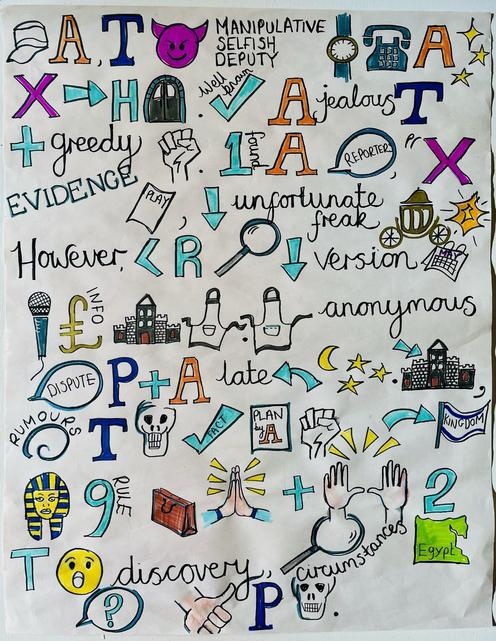 A, T MANIPULATIVE SELFISH DEPUTY A
X H . well known A jealous T
+ greedy . 1 found A REPORTER, pr X
EVIDENCE PLAY , unfortunate freak
However, < R version
INFO £ . anonymous
DISPUTE P + A late . ,
RUMOURS T FACT PLAN by A KINGDOM
9 RULE + 2
T discovery, circumstances Egypt
? P .